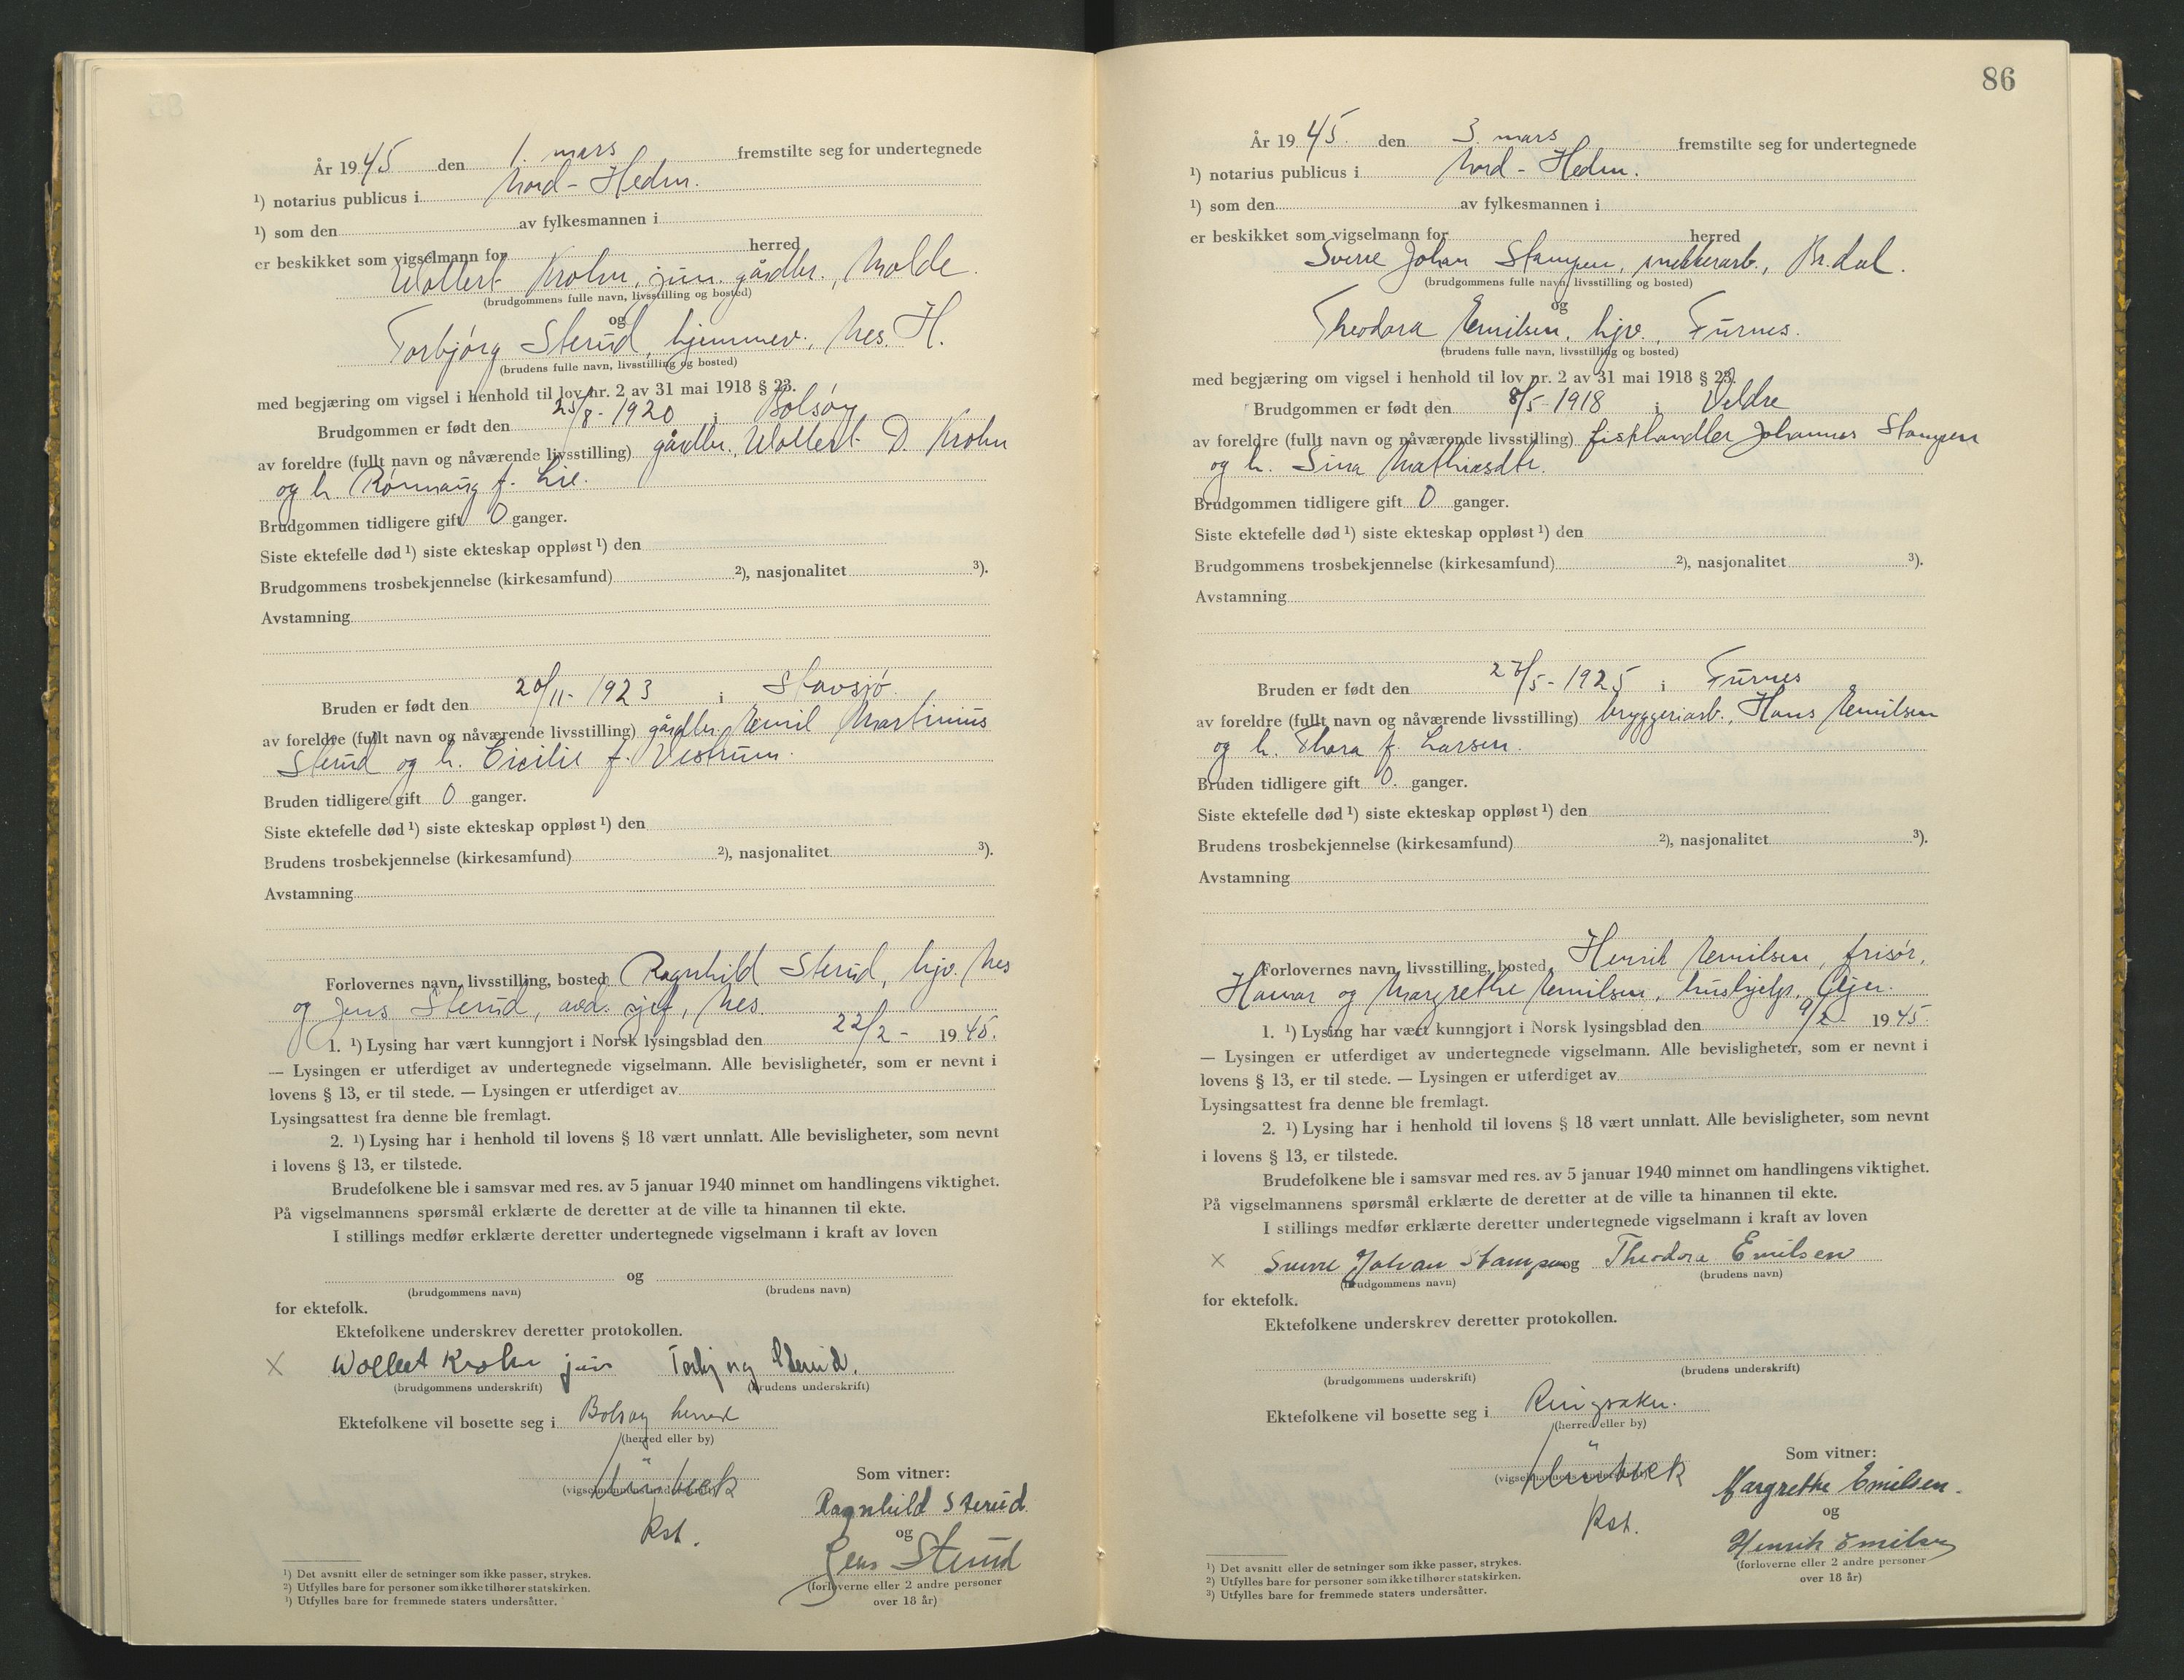 År 1945 den 1. mars fremstilte seg for undertegnede
¹) notarius publicus i Nord-Hedm.
¹) som den av fylkesmannen i
er beskikket som vigselmann for herred
Wollert Krohn, jun. gårdbr., Molde.
(brudgommens fulle navn, livsstilling og bosted)
og
Torbjørg Sterud, hjemmev., Nes. H.
(brudens fulle navn, livsstilling og bosted)
med begjæring om vigsel i henhold til lov nr. 2 av 31 mai 1918 § 23.
Brudgommen er født den 25/8-1920 i Bolsøy
av foreldre (fullt navn og nåværende livsstilling) gårdbr., Wollert D. Krohn
og h. Rønnaug f. Lie.
Brudgommen tidligere gift 0 ganger.
Siste ektefelle død ¹) siste ekteskap oppløst ¹) den
Brudgommens trosbekjennelse (kirkesamfund) ²), nasjonalitet ³).
Avstamning
Bruden er født den 20/11-1923 i Stavsjø.
av foreldre (fullt navn og nåværende livsstilling) gårdbr. Emil Martinius
Sterud og h. Cicilie f. Vestrum.
Bruden tidligere gift 0 ganger.
Siste ektefelle død ¹) siste ekteskap oppløst ¹) den
Brudens trosbekjennelse (kirkesamfund) ²), nasjonalitet ³).
Avstamning
Forlovernes navn, livsstilling, bosted Ragnhild Sterud, hjv. Nes
og Jens Sterud, avd. sjef, Nes.
1. ¹) Lysing har vært kunngjort i Norsk lysingsblad den 22/2- 1945.
— Lysingen er utferdiget av undertegnede vigselmann. Alle bevisligheter, som er nevnt i
lovens § 13, er til stede. — Lysingen er utferdiget av
Lysingsattest fra denne ble fremlagt.
2. ¹) Lysing har i henhold til lovens § 18 vært unnlatt. Alle bevisligheter, som nevnt
i lovens § 13, er tilstede.
Brudefolkene ble i samsvar med res. av 5 januar 1940 minnet om handlingens viktighet.
På vigselmannens spørsmål erklærte de deretter at de ville ta hinannen til ekte.
I stillings medfør erklærte deretter undertegnede vigselmann i kraft av loven
og
(brudgommens navn) (brudens navn)
for ektefolk.
Ektefolkene underskrev deretter protokollen.
x Wollert Krohn jun Torbjørg Sterud.
(brudgommens underskrift) (brudens underskrift)
Ektefolkene vil bosette seg i Bolsøy herred
(herred eller by)
(vigselmannens underskrift)
Som vitner:
Ragnhild Sterud
og
Jens Sterud
(forloverne eller 2 andre personer
over 18 år)
¹) Det avsnitt eller de setninger som ikke passer, strykes.
²) Utfylles bare for personer som ikke tilhører statskirken.
¹) Utfylles bare for fremmede staters undersåtter.
86
År 1945. den 3. mars fremstilte seg for undertegnede
¹) notarius publicus i Nord-Hedm.
¹) som den av fylkesmannen i
er beskikket som vigselmann for herred
Sverre Johan Stampen, snekkerarb., Br.dal.
(brudgommens fulle navn, livsstilling og bosted)
og
Theodora Emilsen, hjv., Furnes.
(brudens fulle navn, livsstilling og bosted)
med begjæring om vigsel i henhold til lov nr. 2 av 31 mai 1918 § 23.
Brudgommen er født den 8/5-1918 i Veldre
av foreldre (fullt navn og nåværende livsstilling) fiskhandler Johannes Stampen
og h. Sina Mathiasdtr.
Brudgommen tidligere gift 0 ganger.
Siste ektefelle død ¹) siste ekteskap oppløst ¹) den
Brudgommens trosbekjennelse (kirkesamfund) ²), nasjonalitet ³).
Avstamning
Bruden er født den 27/5-1925 i Furnes
av foreldre (fullt navn og nåværende livsstilling) bryggeriarb., Hans Emilsen
og h. Thora f. Larsen.
Bruden tidligere gift 0. ganger.
Siste ektefelle død ¹) siste ekteskap oppløst ¹) den
Brudens trosbekjennelse (kirkesamfund) ²), nasjonalitet ³).
Avstamning
Forlovernes navn, livsstilling, bosted Henrik Emilsen, frisør,
Hamar og Margrethe Emilsen, hushjelp,
1. ¹) Lysing har vært kunngjort i Norsk lysingsblad den 9/2- 1945.
— Lysingen er utferdiget av undertegnede vigselmann. Alle bevisligheter, som er nevnt i
lovens § 13, er til stede. — Lysingen er utferdiget av
Lysingsattest fra denne ble fremlagt.
2. ¹) Lysing har i henhold til lovens § 18 vært unnlatt. Alle bevisligheter, som nevnt
i lovens § 13, er tilstede.
Brudefolkene ble i samsvar med res. av 5 januar 1940 minnet om handlingens viktighet.
På vigselmannens spørsmål erklærte de deretter at de ville ta hinannen til ekte.
I stillings medfør erklærte deretter undertegnede vigselmann i kraft av loven
x Sverre Johan Stampen og Theodora Emilsen
(brudgommens navn) (brudens navn)
for ektefolk.
Ektefolkene underskrev deretter protokollen.
(brudgommens underskrift) (brudens underskrift)
Ektefolkene vil bosette seg i Ringsaker.
(herred eller by)
(vigselmannens underskrift)
Som vitner:
Margrethe Emilsen.
og
Henrik Emilsen
(forloverne eller 2 andre personer
over 18 år)
¹) Det avsnitt eller de setninger som ikke passer, strykes.
²) Utfylles bare for personer som ikke tilhører statskirken.
³) Utfylles bare for fremmede staters undersåtter.